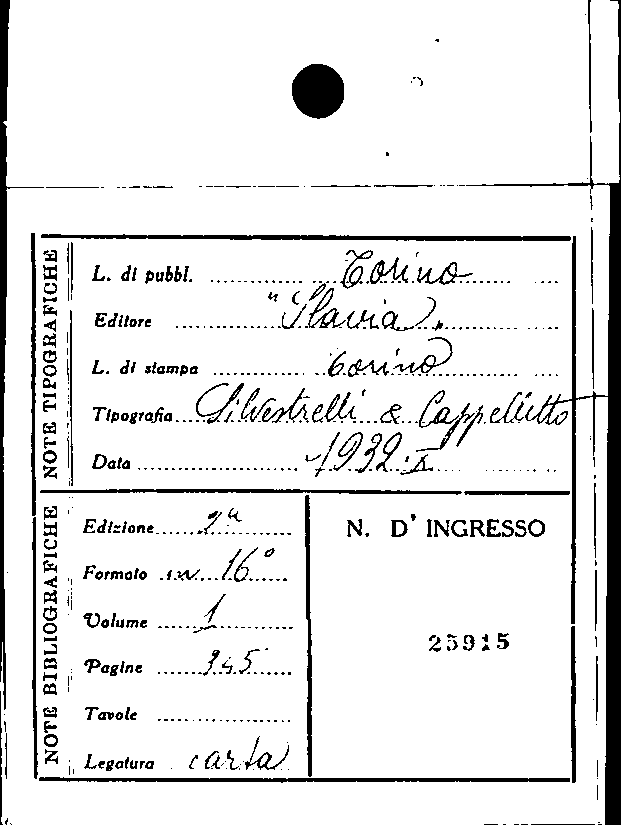 NOTE TIPOGRAFICHE
L. di pubbl. Torino
Editore "Slavia".
L. di stampa Torino
Tipografia Silvestrelli & Cappelletto
Data 1932.X
NOTE BIBLIOGRAFICHE
Edizione 2ª
Formato in 16°
Volume 1
Pagine 345
Tavole
Legatura carta
N. D'INGRESSO
25915